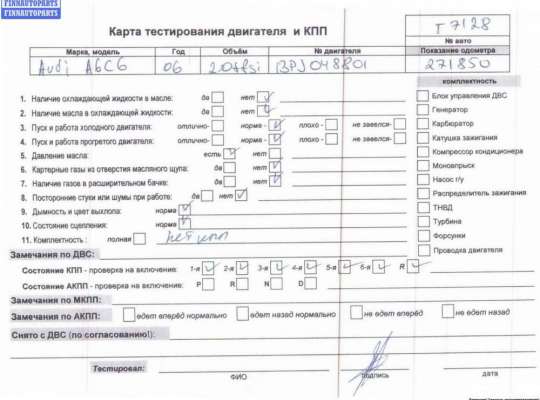 FINNAUTOPARTS
FINNAUTOPARTS
Карта тестирования двигателя и КПП
T 7128
№ авто
Марка, модель Год Объём № двигателя Показание одометра
Audi A6C6 06 2.0tfsi BPJ 048801 271850
комплектность
1. Наличие охлаждающей жидкости в масле: да нет
2. Наличие масла в охлаждающей жидкости: да нет
3. Пуск и работа холодного двигателя: отлично- норма - плохо - не завелся-
4. Пуск и работа прогретого двигателя: отлично- норма - плохо - не завелся-
5. Давление масла: есть нет
6. Картерные газы из отверстия масляного щупа: да нет
7. Наличие газов в расширительном бачке: да нет
8. Посторонние стуки или шумы при работе: да нет
9. Дымность и цвет выхлопа: норма
10. Состояние сцепления: норма
11. Комплектность : полная нет кпп
Блок управления ДВС
Генератор
Карбюратор
Катушка зажигания
Компрессор кондиционера
Моновпрыск
Насос г/у
Распределитель зажигания
ТНВД
Турбина
Форсунки
Проводка двигателя
Замечания по ДВС:
Состояние КПП - проверка на включение: 1-я 2-я 3-я 4-я 5-я 6-я R
Состояние АКПП - проверка на включение: P R N D
Замечания по МКПП:
Замечания по АКПП: едет вперёд нормально едет назад нормально не едет вперёд не едет назад
Снято с ДВС (по согласованию!):
Тестировал:
ФИО подпись дата